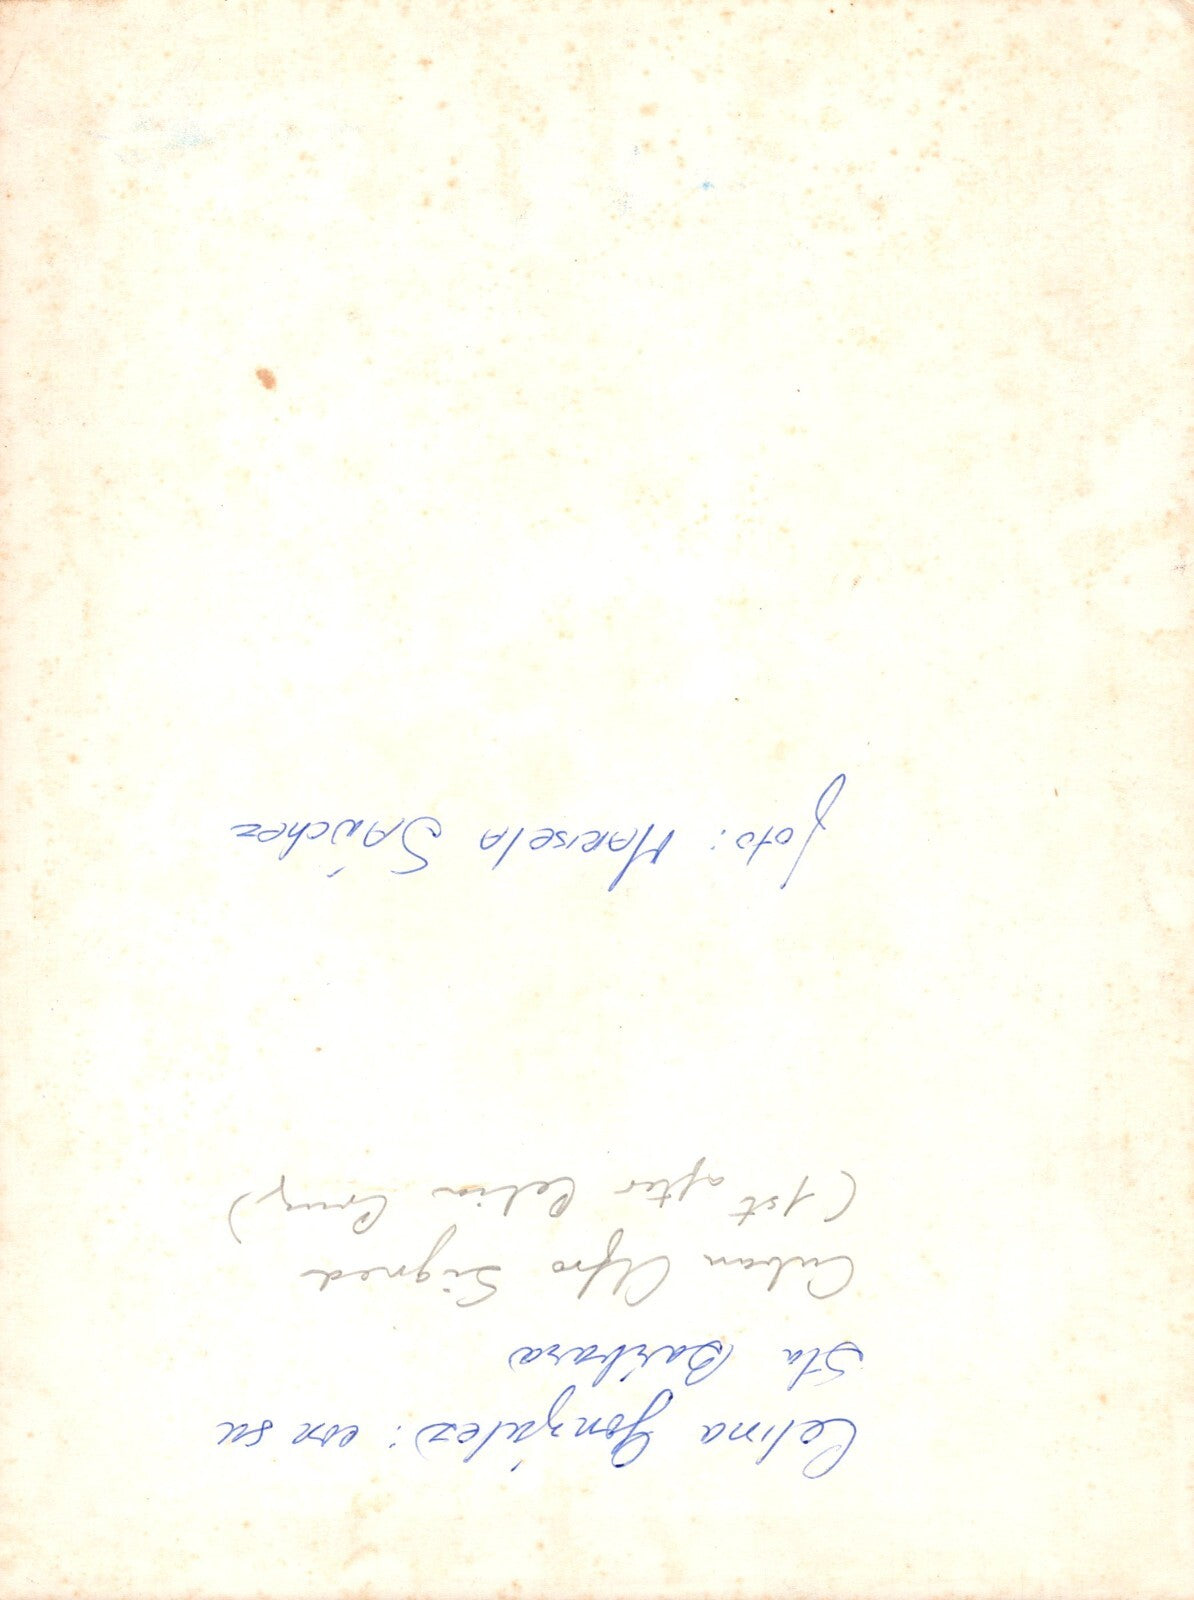 Celina González: con su
Sta Bárbara
Cuban Afro Signed
(1st after Celia Cruz)
foto: MARISELA SÁNCHEZ